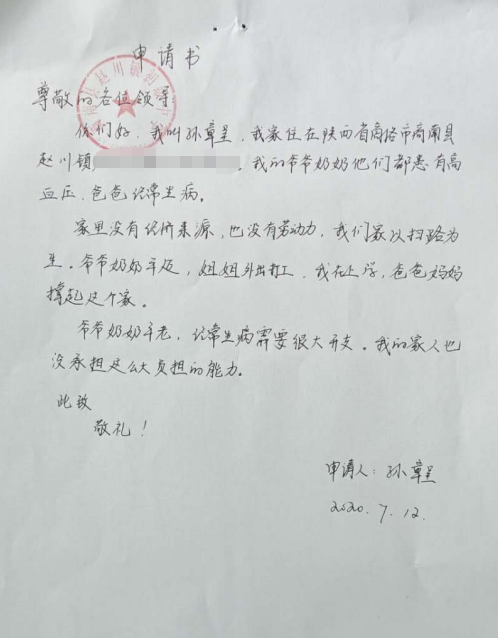 申请书
尊敬的各位领导
你们好，我叫孙章呈，我家住在陕西省商洛市商南县
赵川镇，我的爷爷奶奶他们都患有高
血压，爸爸经常生病。
家里没有经济来源，也没有劳动力，我们家以扫路为
生。爷爷奶奶年迈，姐姐外出打工，我在上学，爸爸妈妈
撑起这个家。
爷爷奶奶年老，经常生病需要很大开支。我的家人也
没承担这么大负担的能力。
此致
敬礼！
申请人：孙章呈
2020.7.12.